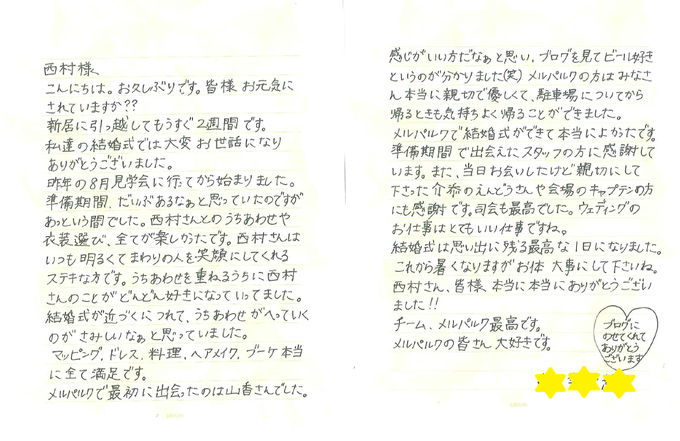 西村様へ
こんにちは。お久しぶりです。皆様お元気に
されていますか??
新居に引っ越してもうすぐ2週間です。
私達の結婚式では大変お世話になり
ありがとうございました。
昨年の8月見学会に行ってから始まりました。
準備期間、だいぶあるなぁと思っていたのですが
あっという間でした。西村さんとのうちあわせや
衣装選び、全てが楽しかったです。西村さんは
いつも明るくてまわりの人を笑顔にしてくれる
ステキな方です。うちあわせを重ねるうちに西村
さんのことがどんどん好きになっていってました。
結婚式が近づくにつれて、うちあわせがへっていく
のがさみしいなぁと思っていました。
マッピング、ドレス、料理、ヘアメイク、ブーケ本当
に全て満足です。
メルパルクで最初に出会ったのは山香さんでした。
感じがいい方だなぁと思い、ブログを見てビール好き
というのが分かりました(笑)メルパルクの方はみなさ
ん本当に親切で優しくて、駐車場についてから
帰るときも気持ちよく帰ることができました。
メルパルクで結婚式ができて本当によかったです。
準備期間で出会えたスタッフの方に感謝して
います。また、当日お会いしたけど親切にして
下さった介添のえんどうさんや会場のキャプテンの方
にも感謝です。司会も最高でした。ウェディングの
お仕事はとてもいい仕事ですね。
結婚式は思い出に残る最高な1日になりました。
これから暑くなりますがお体大事にして下さいね。
西村さん、皆様、本当に本当にありがとうござい
ました!!
チーム、メルパルク最高です。
メルパルクの皆さん大好きです。
ブログに
のせてくれて
ありがとう
ございます